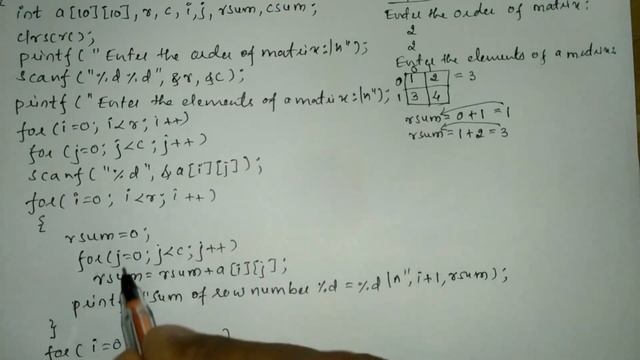 int a[10][10], r, c, i, j, rsum, csum;
clrscr();
printf("Enter the order of matrix:\n");
scanf("%d %d", &r, &c);
printf("Enter the elements of a matrix:\n");
for(i=0; i<r; i++)
for(j=0; j<c; j++)
scanf("%d", &a[i][j]);
for(i=0; i<r; i++)
{
rsum=0;
for(j=0; j<c; j++)
rsum=rsum+a[i][j];
"Sum of row number %d = %d\n", i+1, rsum);
}
for(i=0
Enter the order of matrix:
2
2
Enter the elements of a matrix
0 1 2 = 3
1 3 4
rsum = 0+1 = 1
rsum = 1+2 = 3